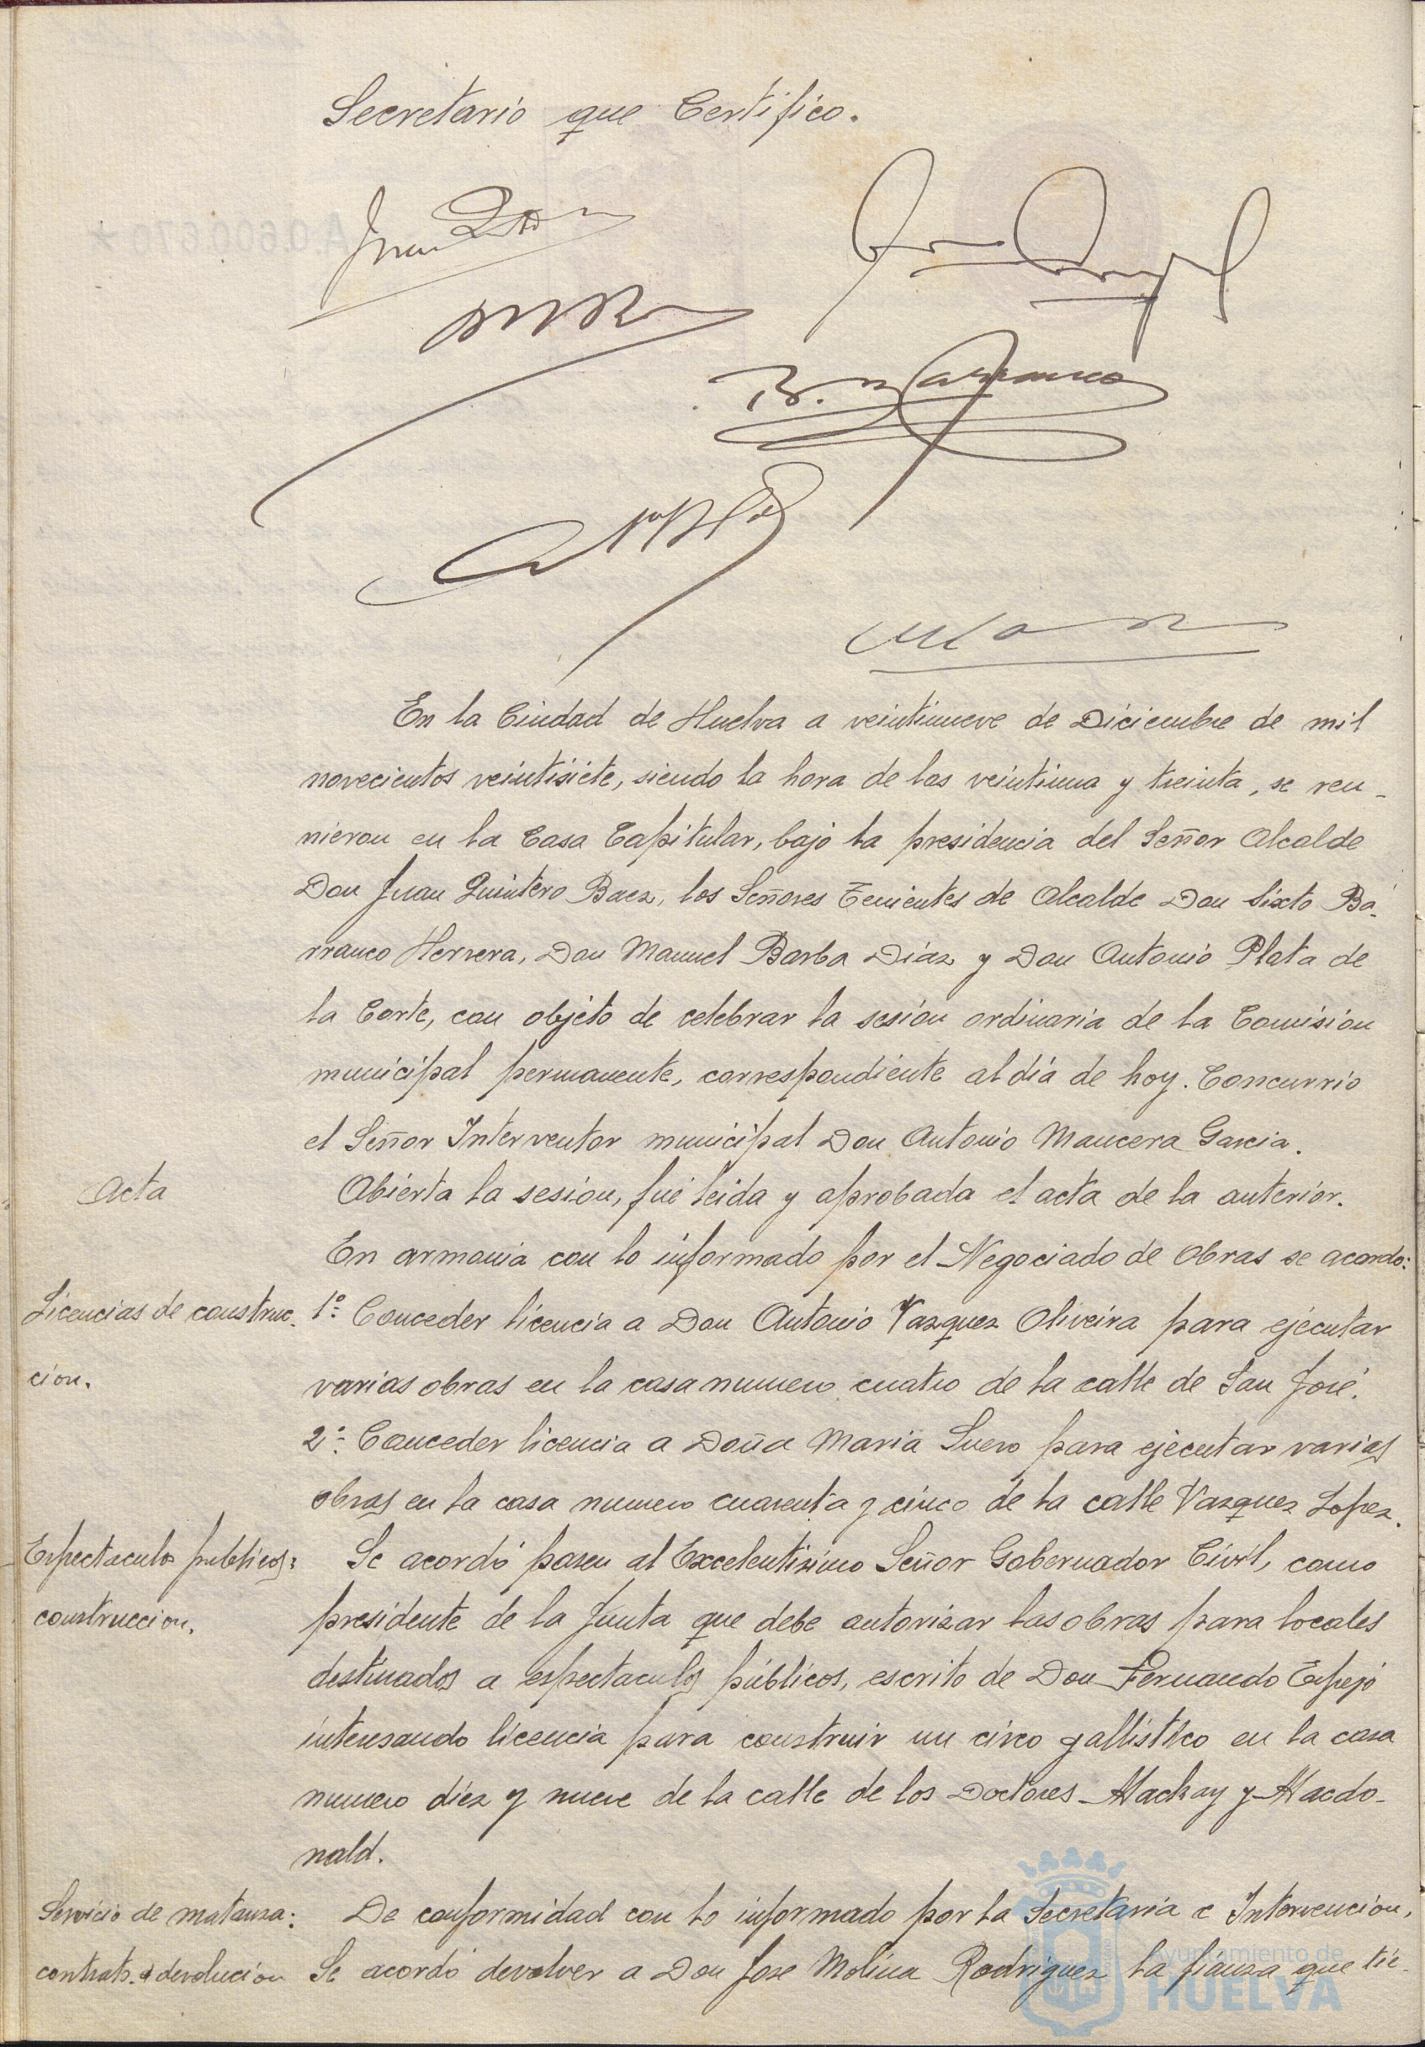 Secretario que Certifico.
B. Barranco
En la Ciudad de Huelva a veintinueve de Diciembre de mil
novecientos veintisiete, siendo la hora de las veintiuna y treinta, se reu-
nieron en la Casa Capitular, bajo la presidencia del Señor Alcalde
Don Juan Quintero Baez, los Señores Tenientes de Alcalde Don Sixto Ba-
rranco Herrera, Don Manuel Barba Díaz y Don Antonio Plata de
la Corte, con objeto de celebrar la sesión ordinaria de la Comisión
municipal permanente, correspondiente al día de hoy. Concurrió
el Señor Interventor municipal Don Antonio Mancera Garcia.
Acta
Abierta la sesión, fué leida y aprobada el acta de la anterior.
En armonia con lo informado por el Negociado de Obras se acordo:
Licencias de construc-
1º Conceder licencia a Don Antonio Vazquez Oliveira para ejecutar
cion.
varias obras en la casa numero cuatro de la calle de San José.
2º Conceder licencia a Doña Maria Suero para ejecutar varias
obras en la casa numero cuarenta y cinco de la calle Vazquez Lopez.
Espectaculos publicos:
Se acordó pasen al Excelentisimo Señor Gobernador Civil, como
construccion.
presidente de la Junta que debe autorizar las obras para locales
destinados a espectaculos públicos, escrito de Don Fernando Espejo
interesando licencia para construir un circo gallistico en la casa
numero diez y nueve de la calle de los Doctores Mackay y Macdo-
nald.
Servicio de matanza:
De conformidad con lo informado por la Secretaria e Intervencion,
contrato devolucion
Se acordó devolver a Don Jose Molina Rodriguez la fianza que tie-
Ayuntamiento de
HUELVA